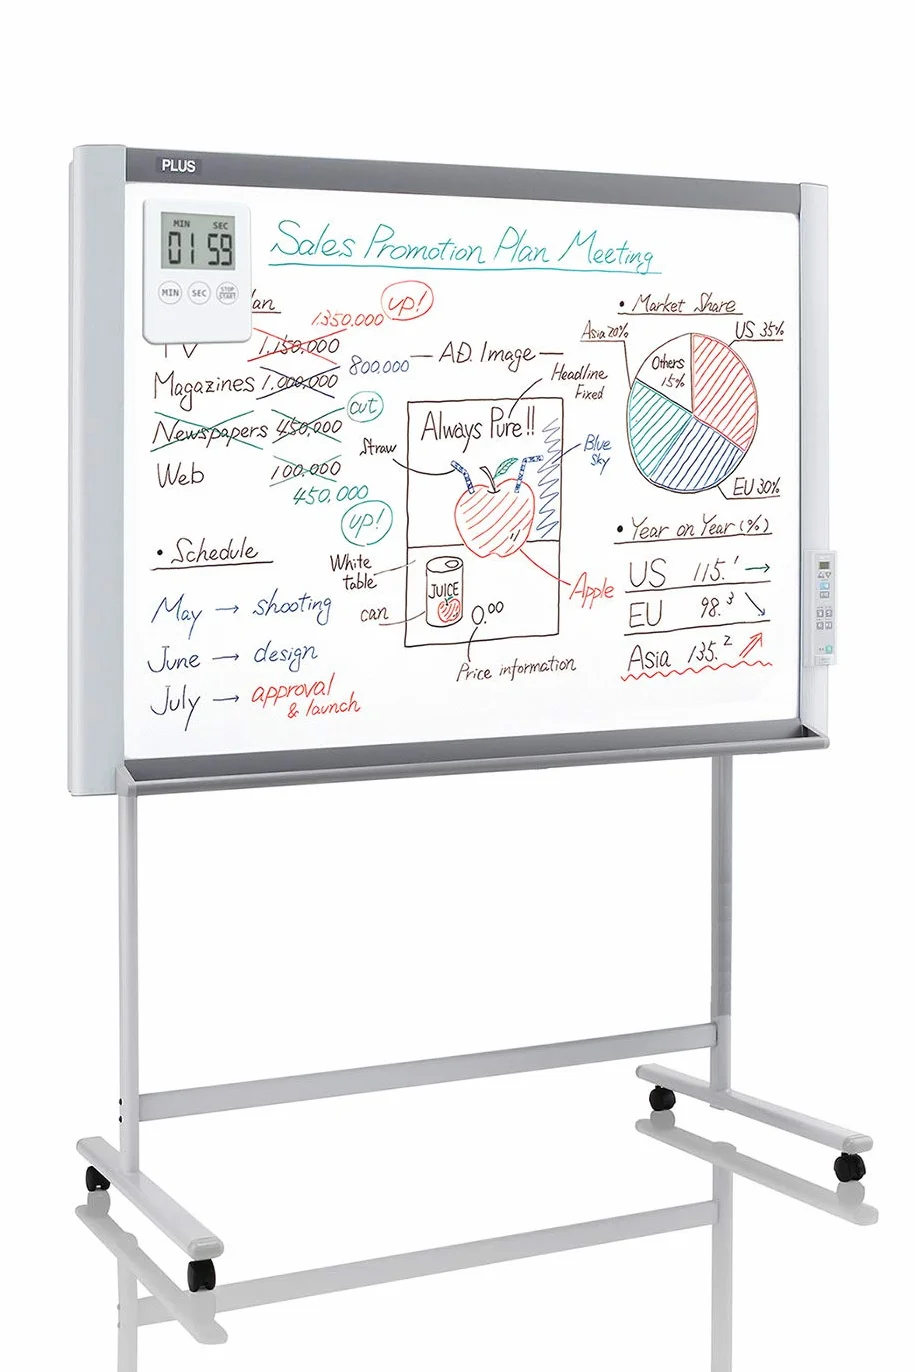 PLUS
MIN SEC
01 59
MIN SEC STOP START
Sales Promotion Plan Meeting
1,350,000 up!
TV 1,150,000
Magazines 1,000,000 800,000
Newspapers 450,000 cut
Web 100,000
450,000
up!
• Schedule
May → shooting
June → design
July → approval
& launch
— AD. Image —
Headline
Fixed
Always Pure!!
Straw
Blue
Sky
White
table
can
JUICE
0.00
Apple
Price information
• Market Share
Asia 20%
US 35%
Others
15%
EU 30%
• Year on Year (%)
US 115.1 →
EU 98.3 ↘
Asia 135.2 ↗